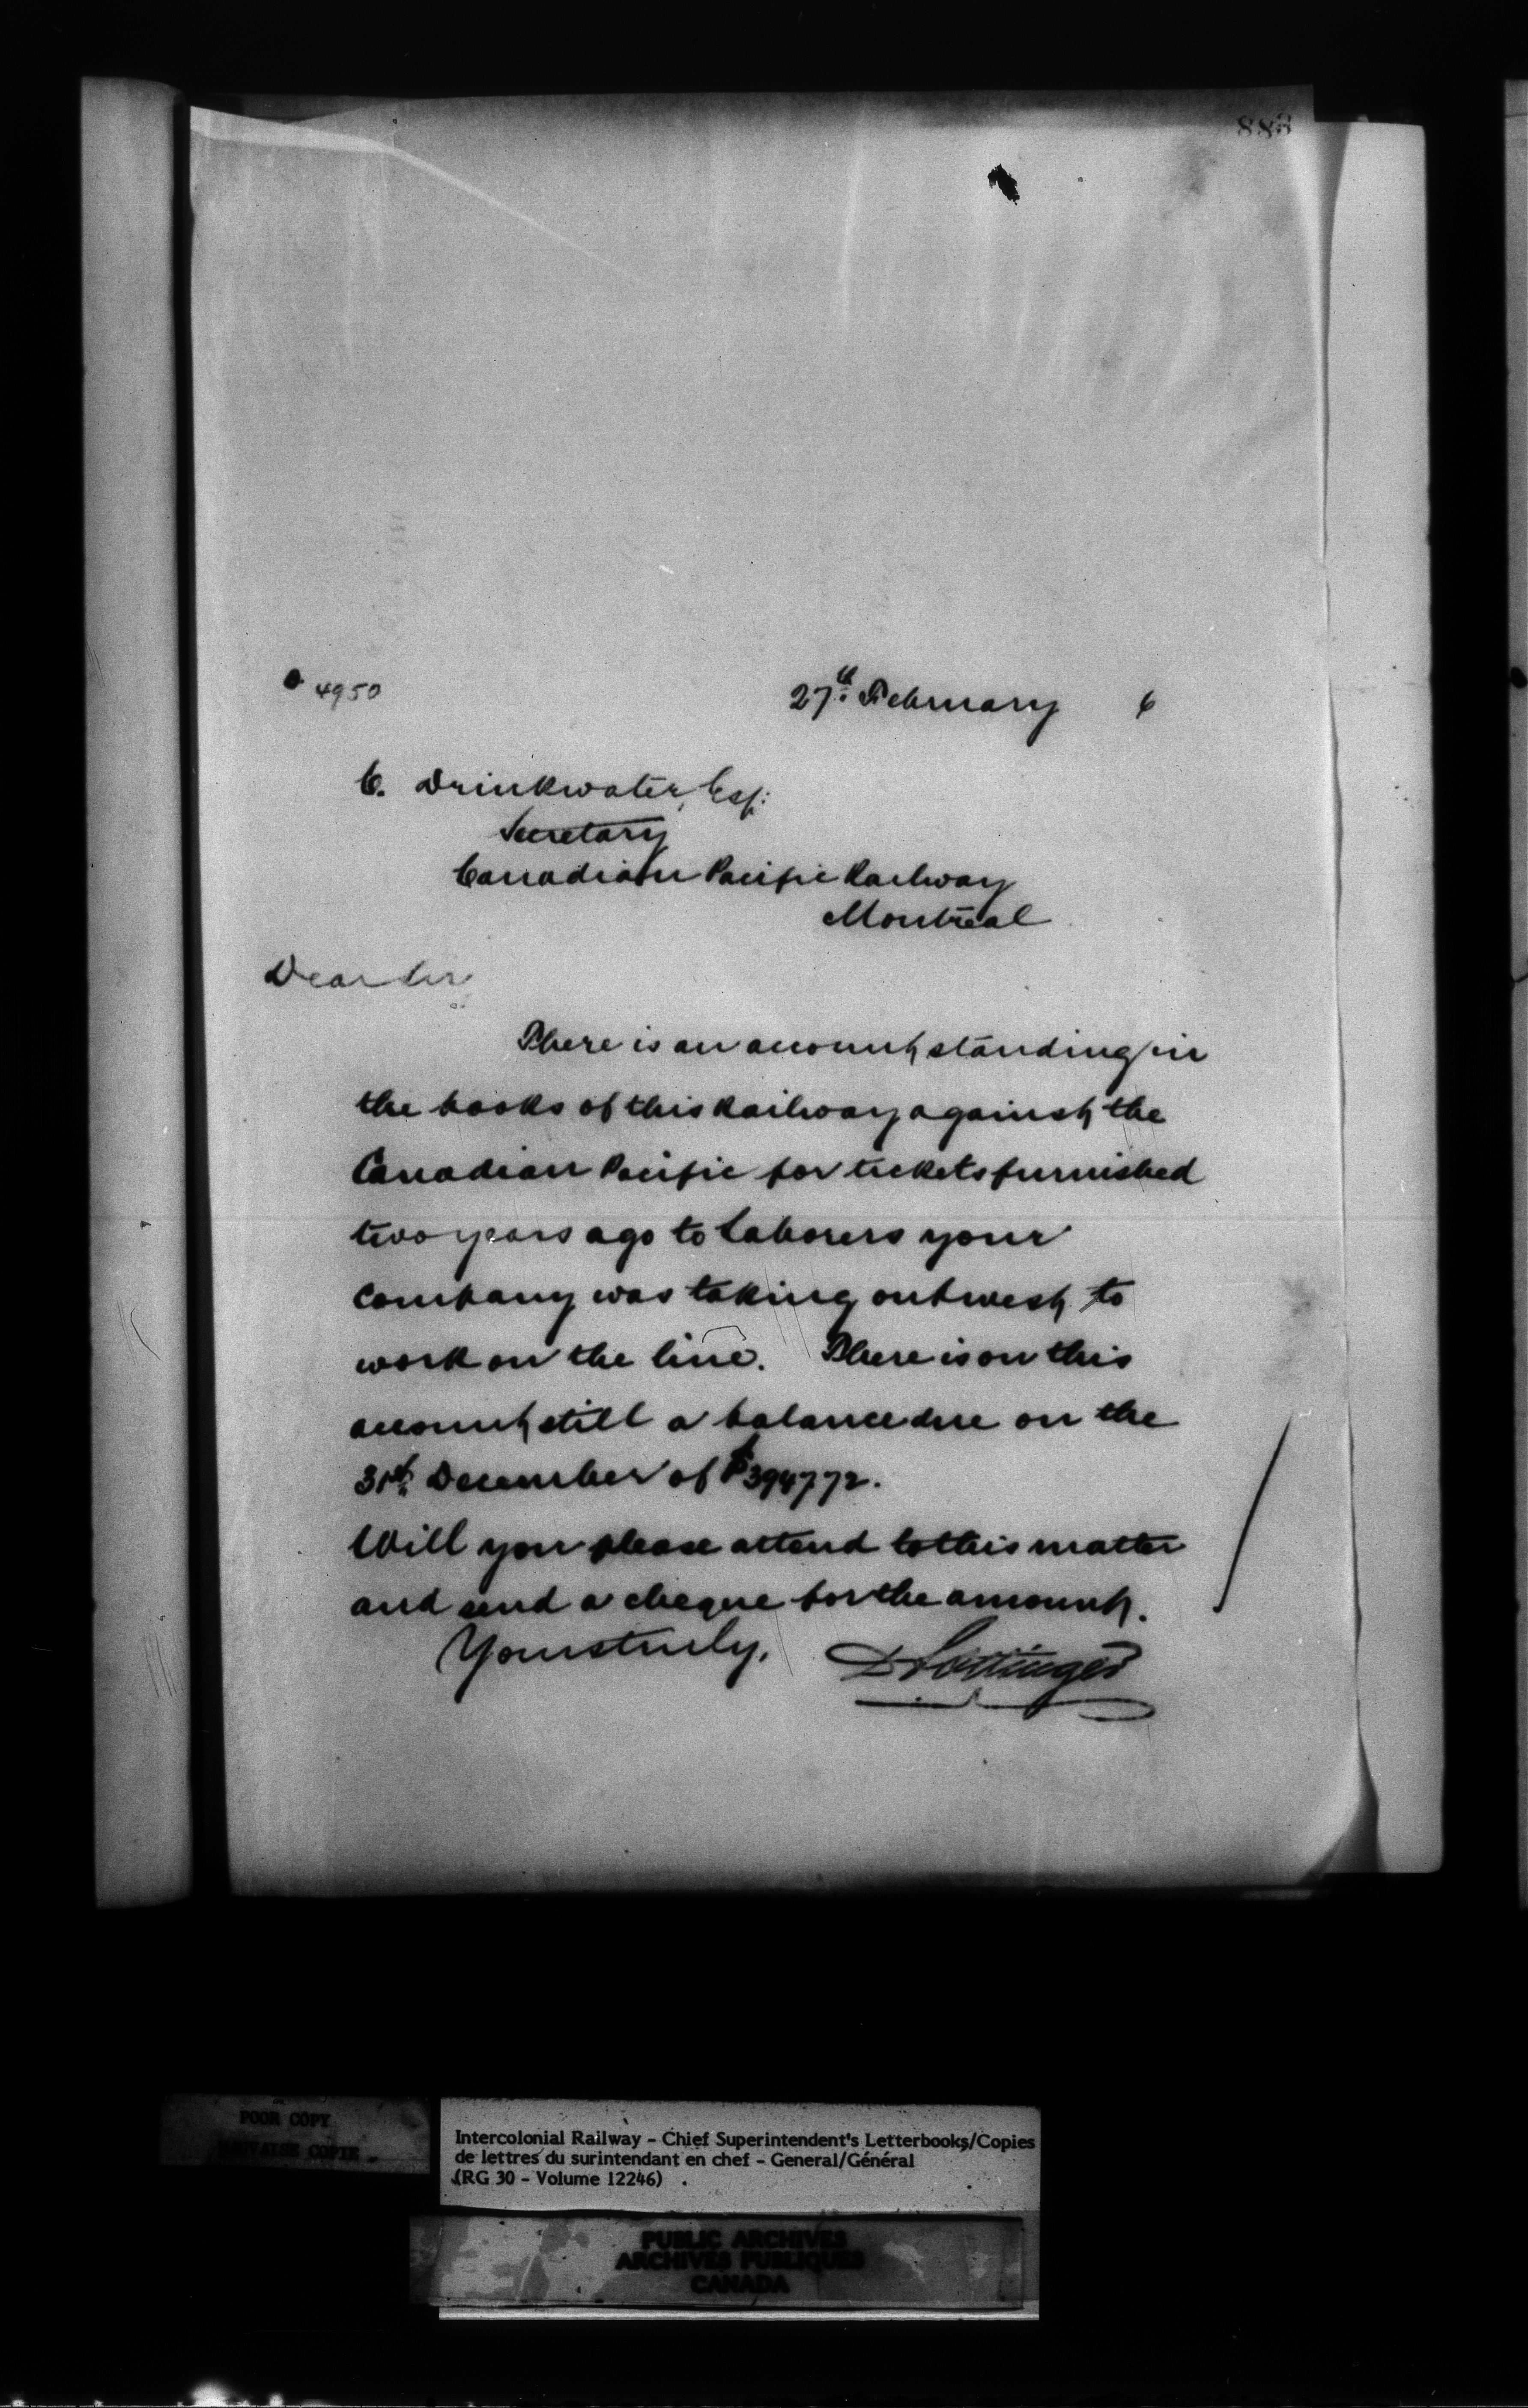 883
4950
27th February 6
C. Drinkwater, Esq:
Secretary
Canadian Pacific Railway
Montreal
Dear Sir
There is an account standing in
the books of this Railway against the
Canadian Pacific for tickets furnished
two years ago to laborers your
Company was taking out west to
work on the line. There is on this
account still a balance due on the
31st December of $394772.
Will you please attend to this matter
and send a cheque for the amount.
Yours truly, D Pottinger
POOR COPY
MAUVAISE COPIE
Intercolonial Railway - Chief Superintendent's Letterbooks/Copies
de lettres du surintendant en chef - General/Général
(RG 30 - Volume 12246)
PUBLIC ARCHIVES
ARCHIVES PUBLIQUES
CANADA